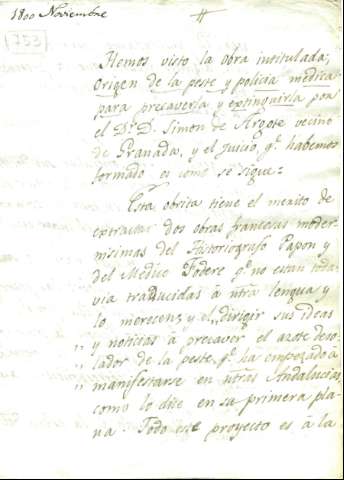 1800 Noviembre
#
753
Hemos visto la obra intitulada;
Origen de la peste y policia medica
para precaverla y extinguirla por
el Dr. D. Simon de Argote vecino
de Granada, y el juicio, q.e habemos
formado es como se sigue:
Esta obrita tiene el merito de
extractar dos obras francesas moder-
nisimas del Historiografo Papon y
del Medico Fodere q.e no estan toda-
via traducidas à ntra lengua y
lo merecen; y el dirigir sus ideas
" y noticias à precaver el azote deso-
" lador de la peste, q.e ha empezado à
" manifestarse en ntras Andalucias,
como lo dice en su primera pla-
na. Todo este proyecto es à la